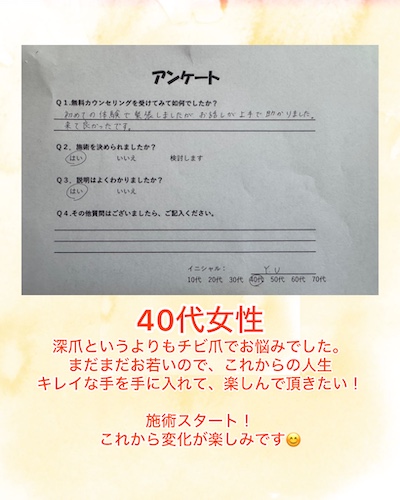 アンケート
Q1.無料カウンセリングを受けてみて如何でしたか？
初めての体験で緊張しましたが お話しが上手で助かりました。
来て良かったです。
Q2、施術を決められましたか？
はい いいえ 検討します
Q3、説明はよくわかりましたか？
はい いいえ
Q4.その他質問はございましたら、ご記入ください。
イニシャル： YU
10代 20代 30代 40代 50代 60代 70代
40代女性
深爪というよりもチビ爪でお悩みでした。
まだまだお若いので、これからの人生
キレイな手を手に入れて、楽しんで頂きたい！
施術スタート！
これから変化が楽しみです😊